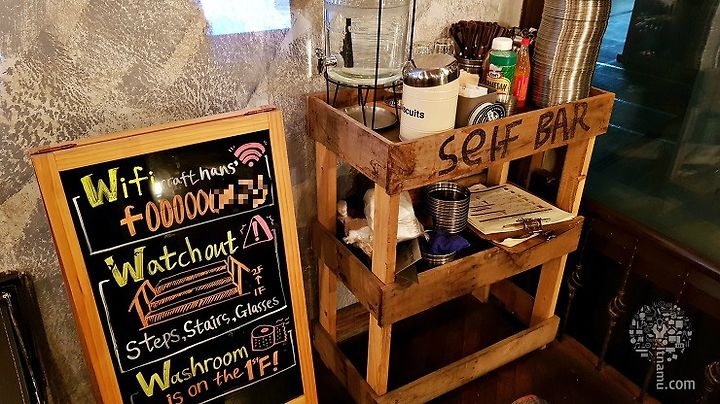 Wifi crafthans'
+00000
Watch out
2F
↑
1F
Steps, Stairs, Glasses
Washroom
is on the 1F!
Biscuits
SElF BAR
tnamu.com